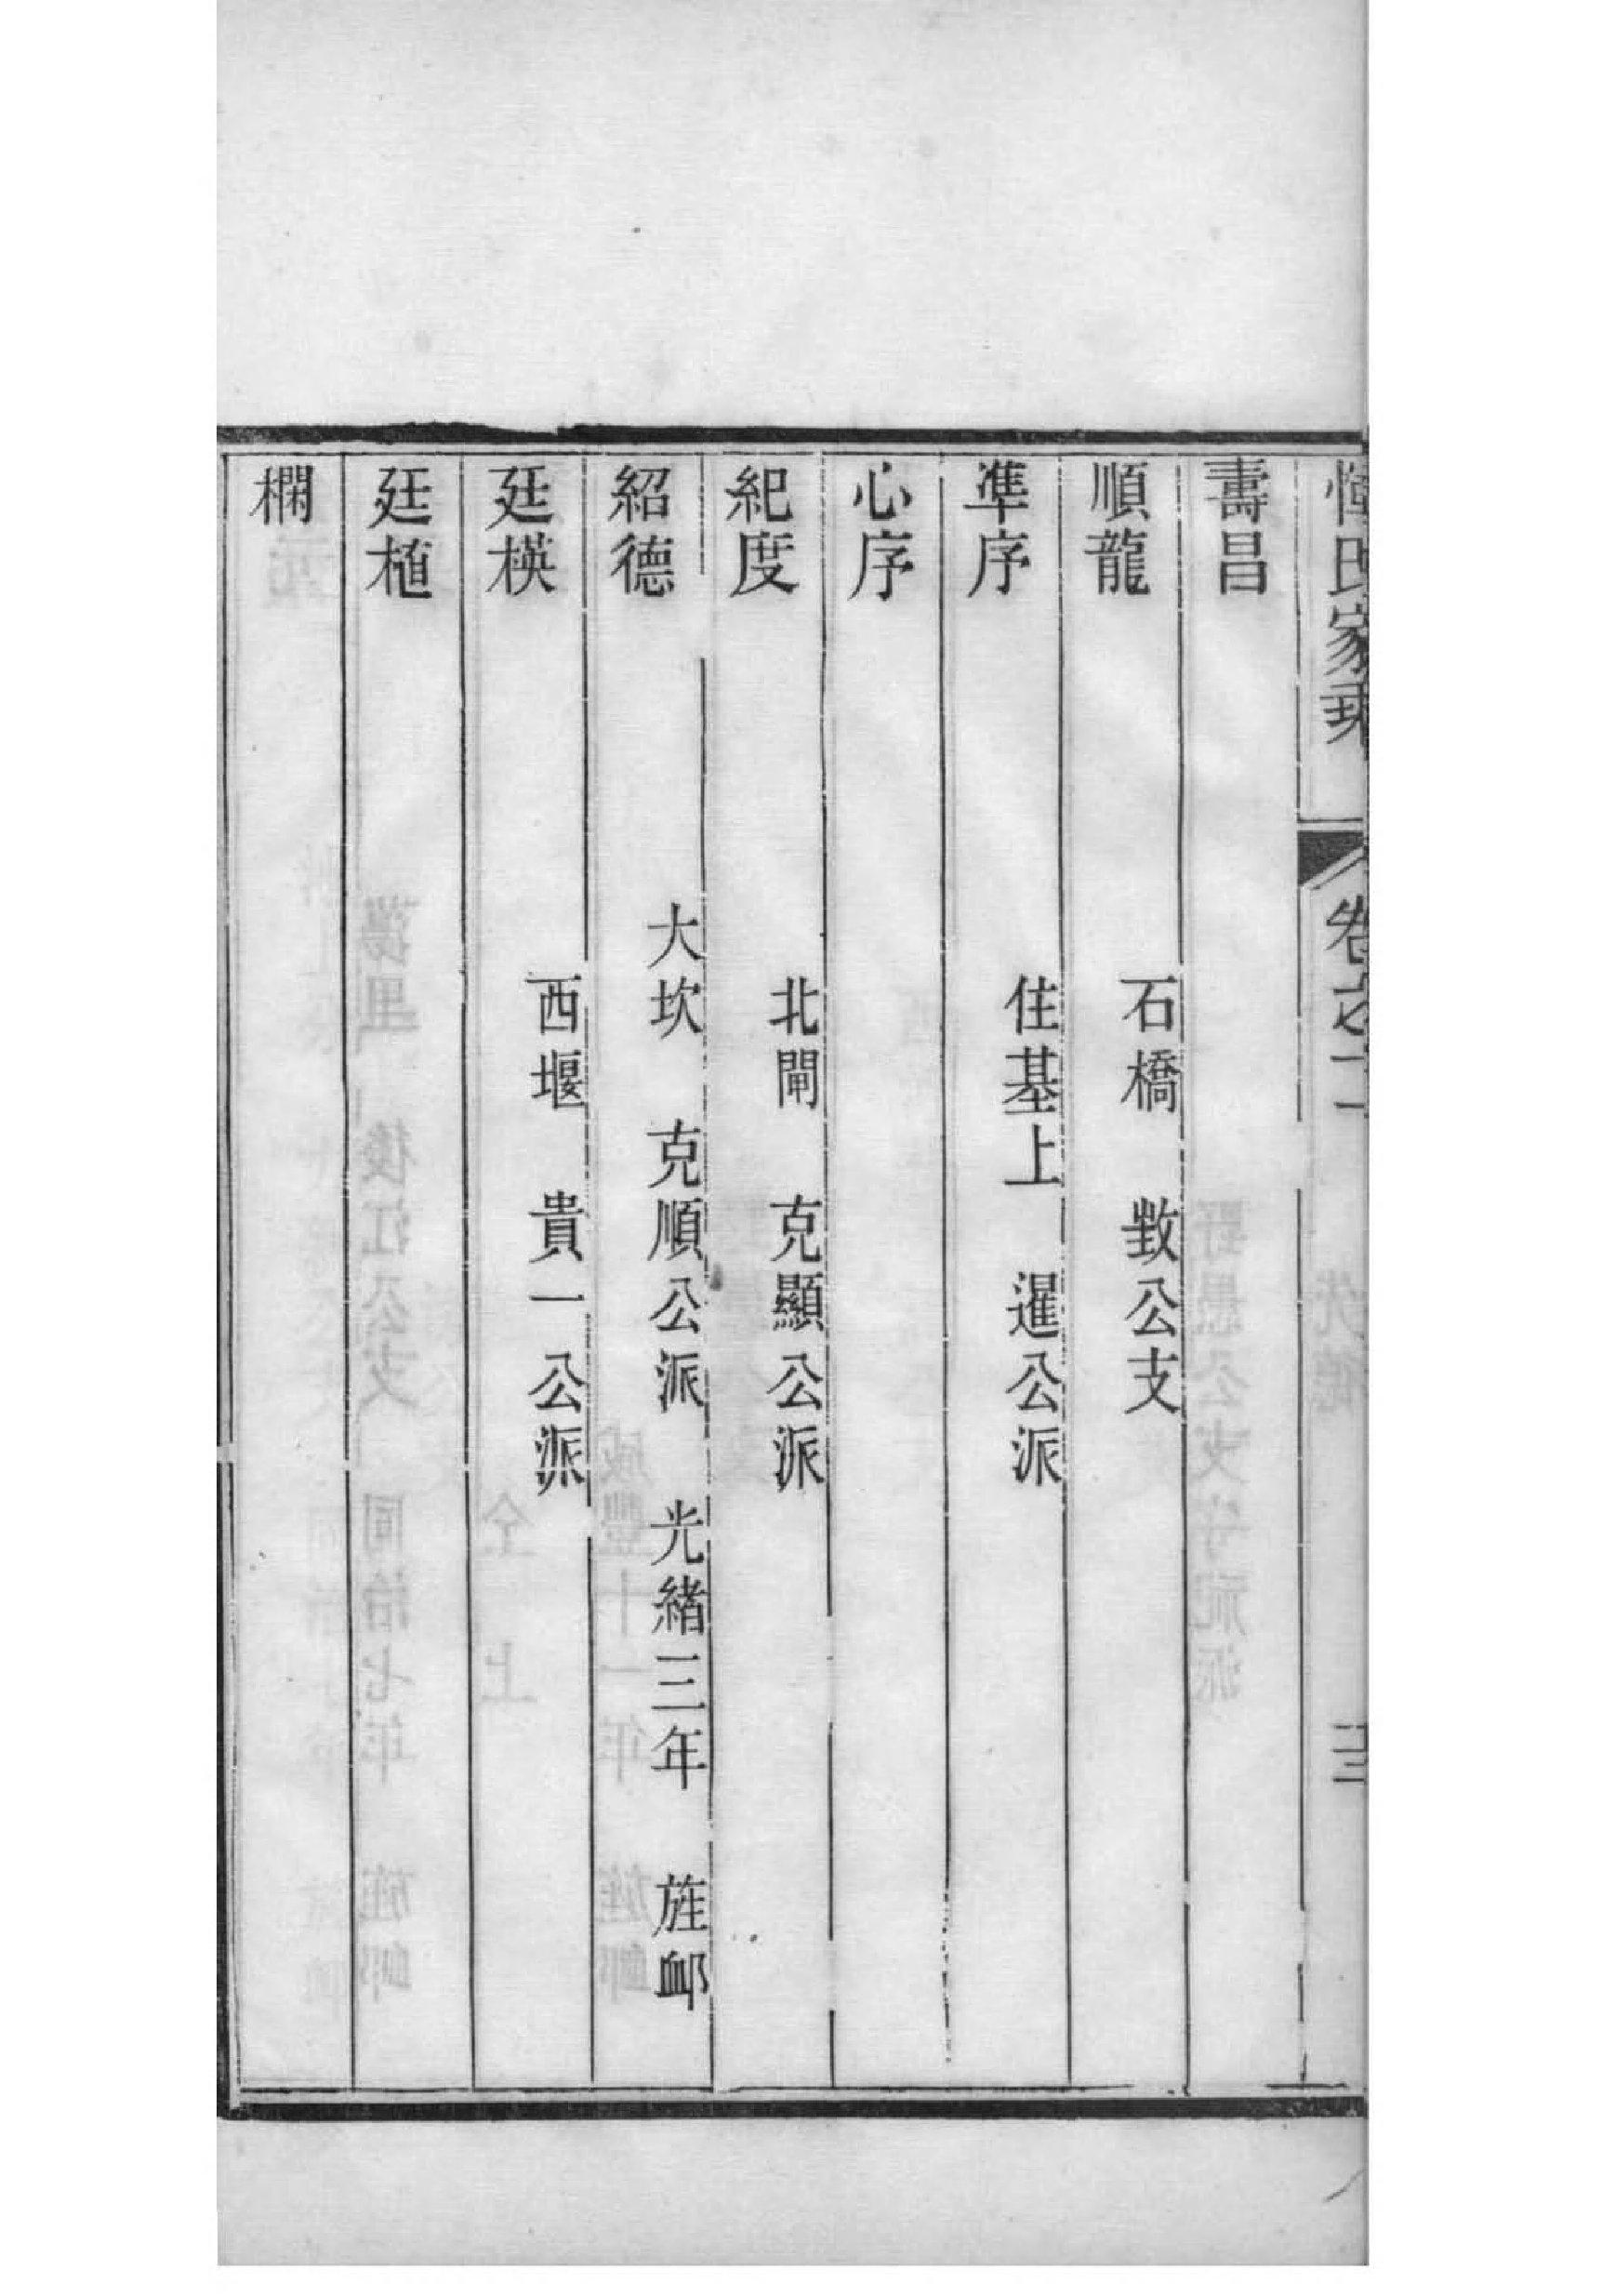 惲氏家乘 卷之十一
壽昌
石橋 敳公支
順龍
住基上 暹公派
準序
心序
北閘 克顯公派
紀度
大坎 克順公派 光緒三年 旌卹
紹德
西堰 貴一公派
廷楧
廷植
欄